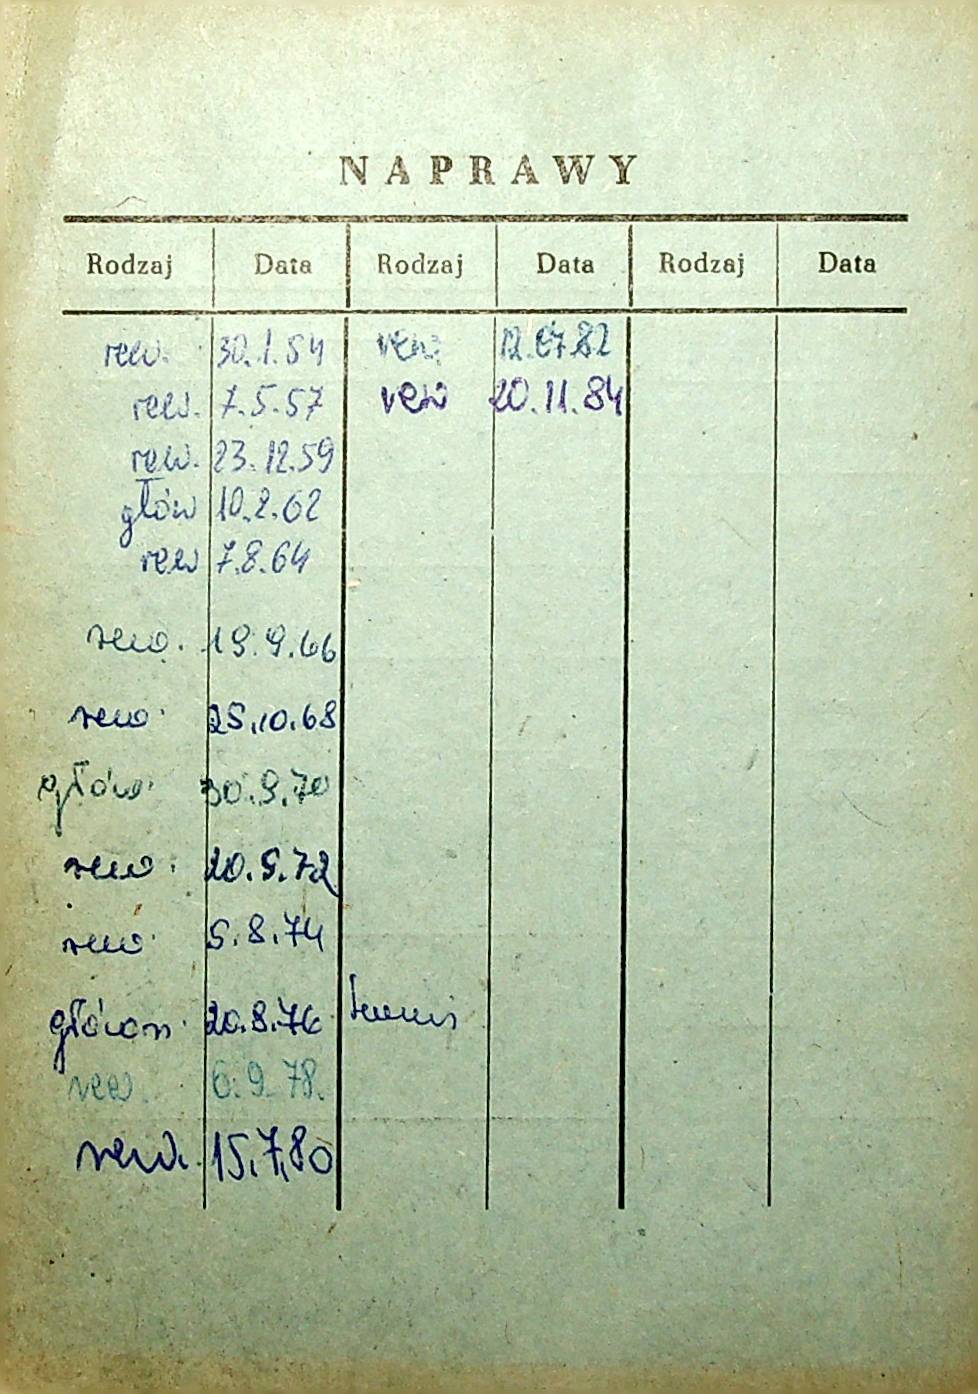 NAPRAWY
Rodzaj Data Rodzaj Data Rodzaj Data
rew. 30.1.54 rew. 12.07.82
rew. 7.5.57 rew 20.11.84
rew. 23.12.59
głów 10.2.62
rew 7.8.64
rew. 19.9.66
rew. 25.10.68
głów. 30.9.70
rew. 20.9.72
rew. 5.8.74
główn. 20.8.76
rew. 6.9.78.
rew. 15.7.80